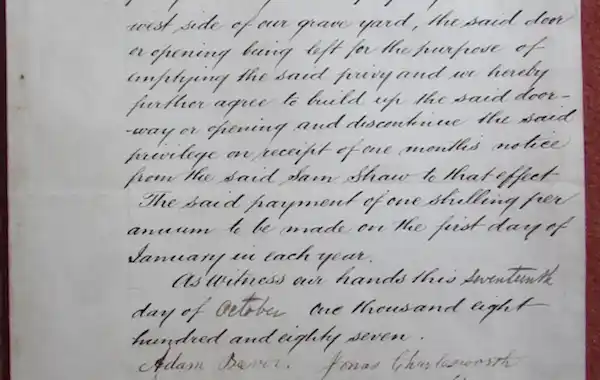 west side of our grave yard, the said door
or opening being left for the purpose of
emptying the said privy and we hereby
further agree to build up the said door-
-way or opening and discontinue the said
privilege on receipt of one months notice
from the said Sam Shaw to that effect
The said payment of one shilling per
annum to be made on the first day of
January in each year.
As Witness our hands this seventeenth
day of October one thousand eight
hundred and eighty seven.
Adam Jonas Charlesworth